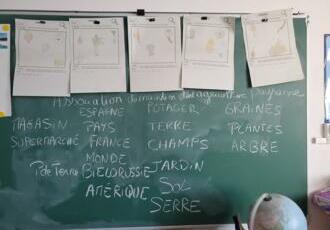 Association
ESPAGNE POTAGER GRAINES
MAGASIN PAYS TERRE PLANTES
SUPERMARCHÉ FRANCE CHAMPS ARBRE
MONDE
P de Terre BIELORUSSIE JARDIN
AMÉRIQUE SOL
SERRE